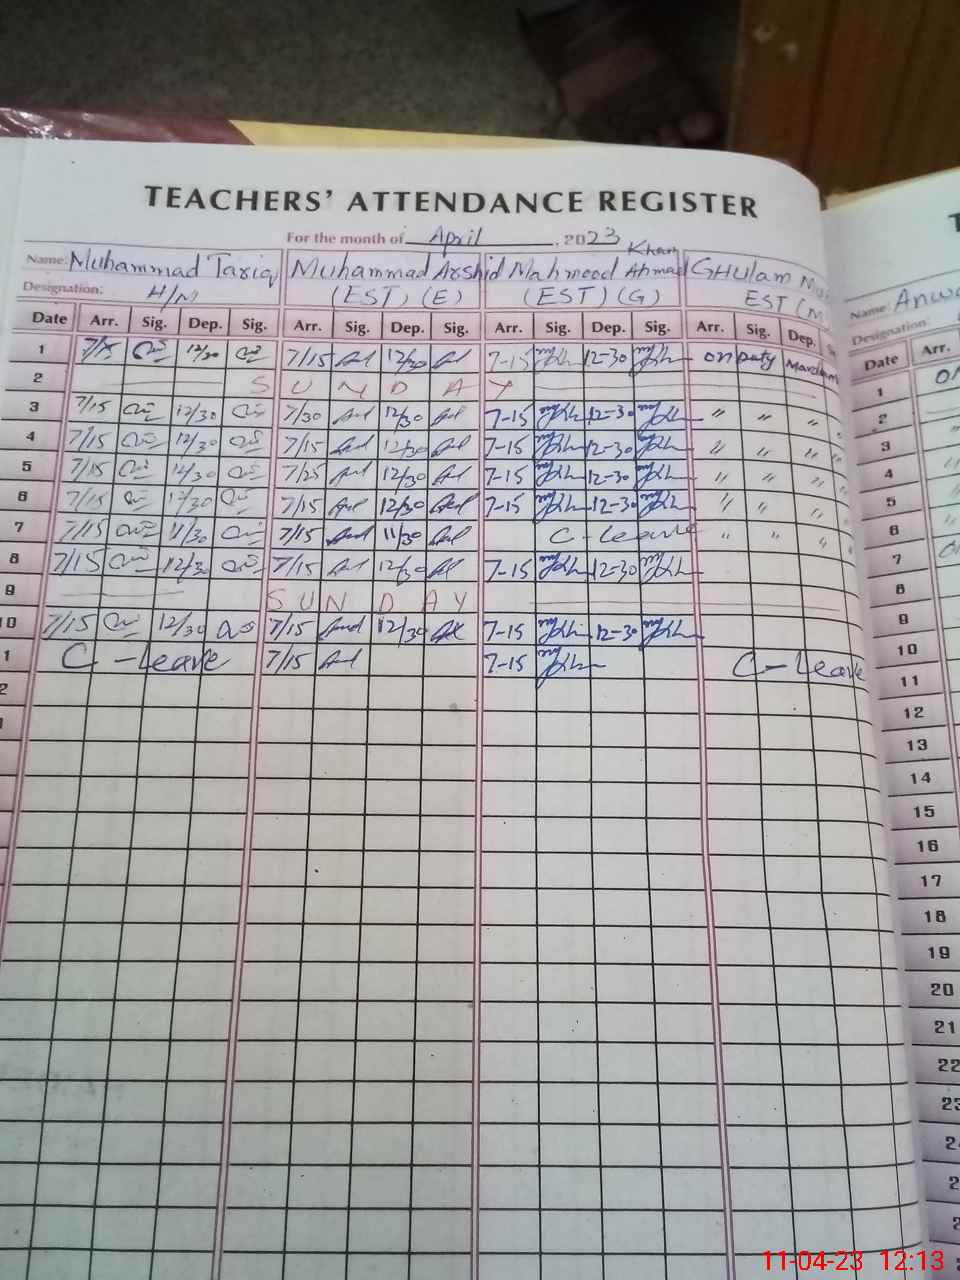 TEACHERS' ATTENDANCE REGISTER
For the month of April, 2023
Name: Muhammad Tariq Muhammad Arshid Mahmood Ahmad Khan GHulam
Designation: H/M (EST) (E) (EST) (G) EST (M
Date Arr. Sig. Dep. Sig. Arr. Sig. Dep. Sig. Arr. Sig. Dep. Sig. Arr. Sig. Dep.
1 7/15 12/30 7/15 12/30 7-15 12-30 on Duty
2 S U N D A Y
3 7/15 12/30 7/30 12/30 7-15 12-30 " " "
4 7/15 12/30 7/15 12/30 7-15 12-30 " " " "
5 7/15 12/30 7/25 12/30 7-15 12-30 " " " "
6 7/15 12/30 7/15 12/30 7-15 12-30 " " " "
7 7/15 11/30 7/15 11/30 C-Leave " " " "
8 7/15 12/30 7/15 12/30 7-15 12-30
9 S U N D A Y
10 7/15 12/30 7/15 12/30 7-15 12-30
1 C-Leave 7/15 7-15 C-Leave
2
1
T
Name: Anwa
Designation:
Date Arr.
1
2
3
4
5
6
7
8
9
10
11
12
13
14
15
16
17
18
19
20
21
22
23
11-04-23 12:13